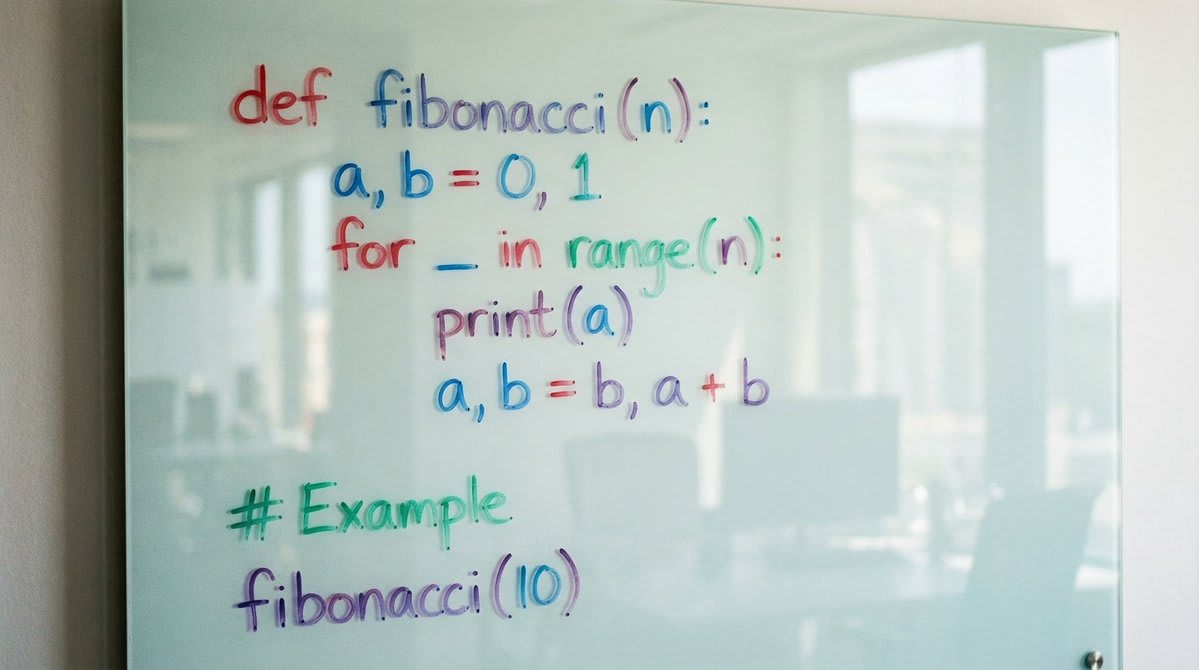 def fibonacci(n):
    a, b = 0, 1
    for _ in range(n):
        print(a)
        a, b = b, a + b

# Example
fibonacci(10)